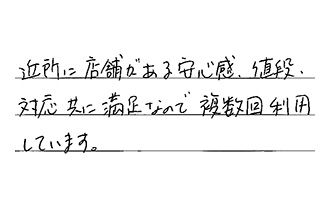 近所に店舗がある安心感、値段、
対応共に満足なので複数回利用
しています。